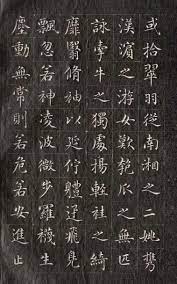 或拾翠羽從南湘之二姚攜
漢濱之游女歎匏瓜之無匹
詠牽牛之獨處揚輕袿之綺
靡翳脩袖以延佇體迅飛鳧
飄忽若神凌波微步羅襪生
塵動無常則若危若安進止